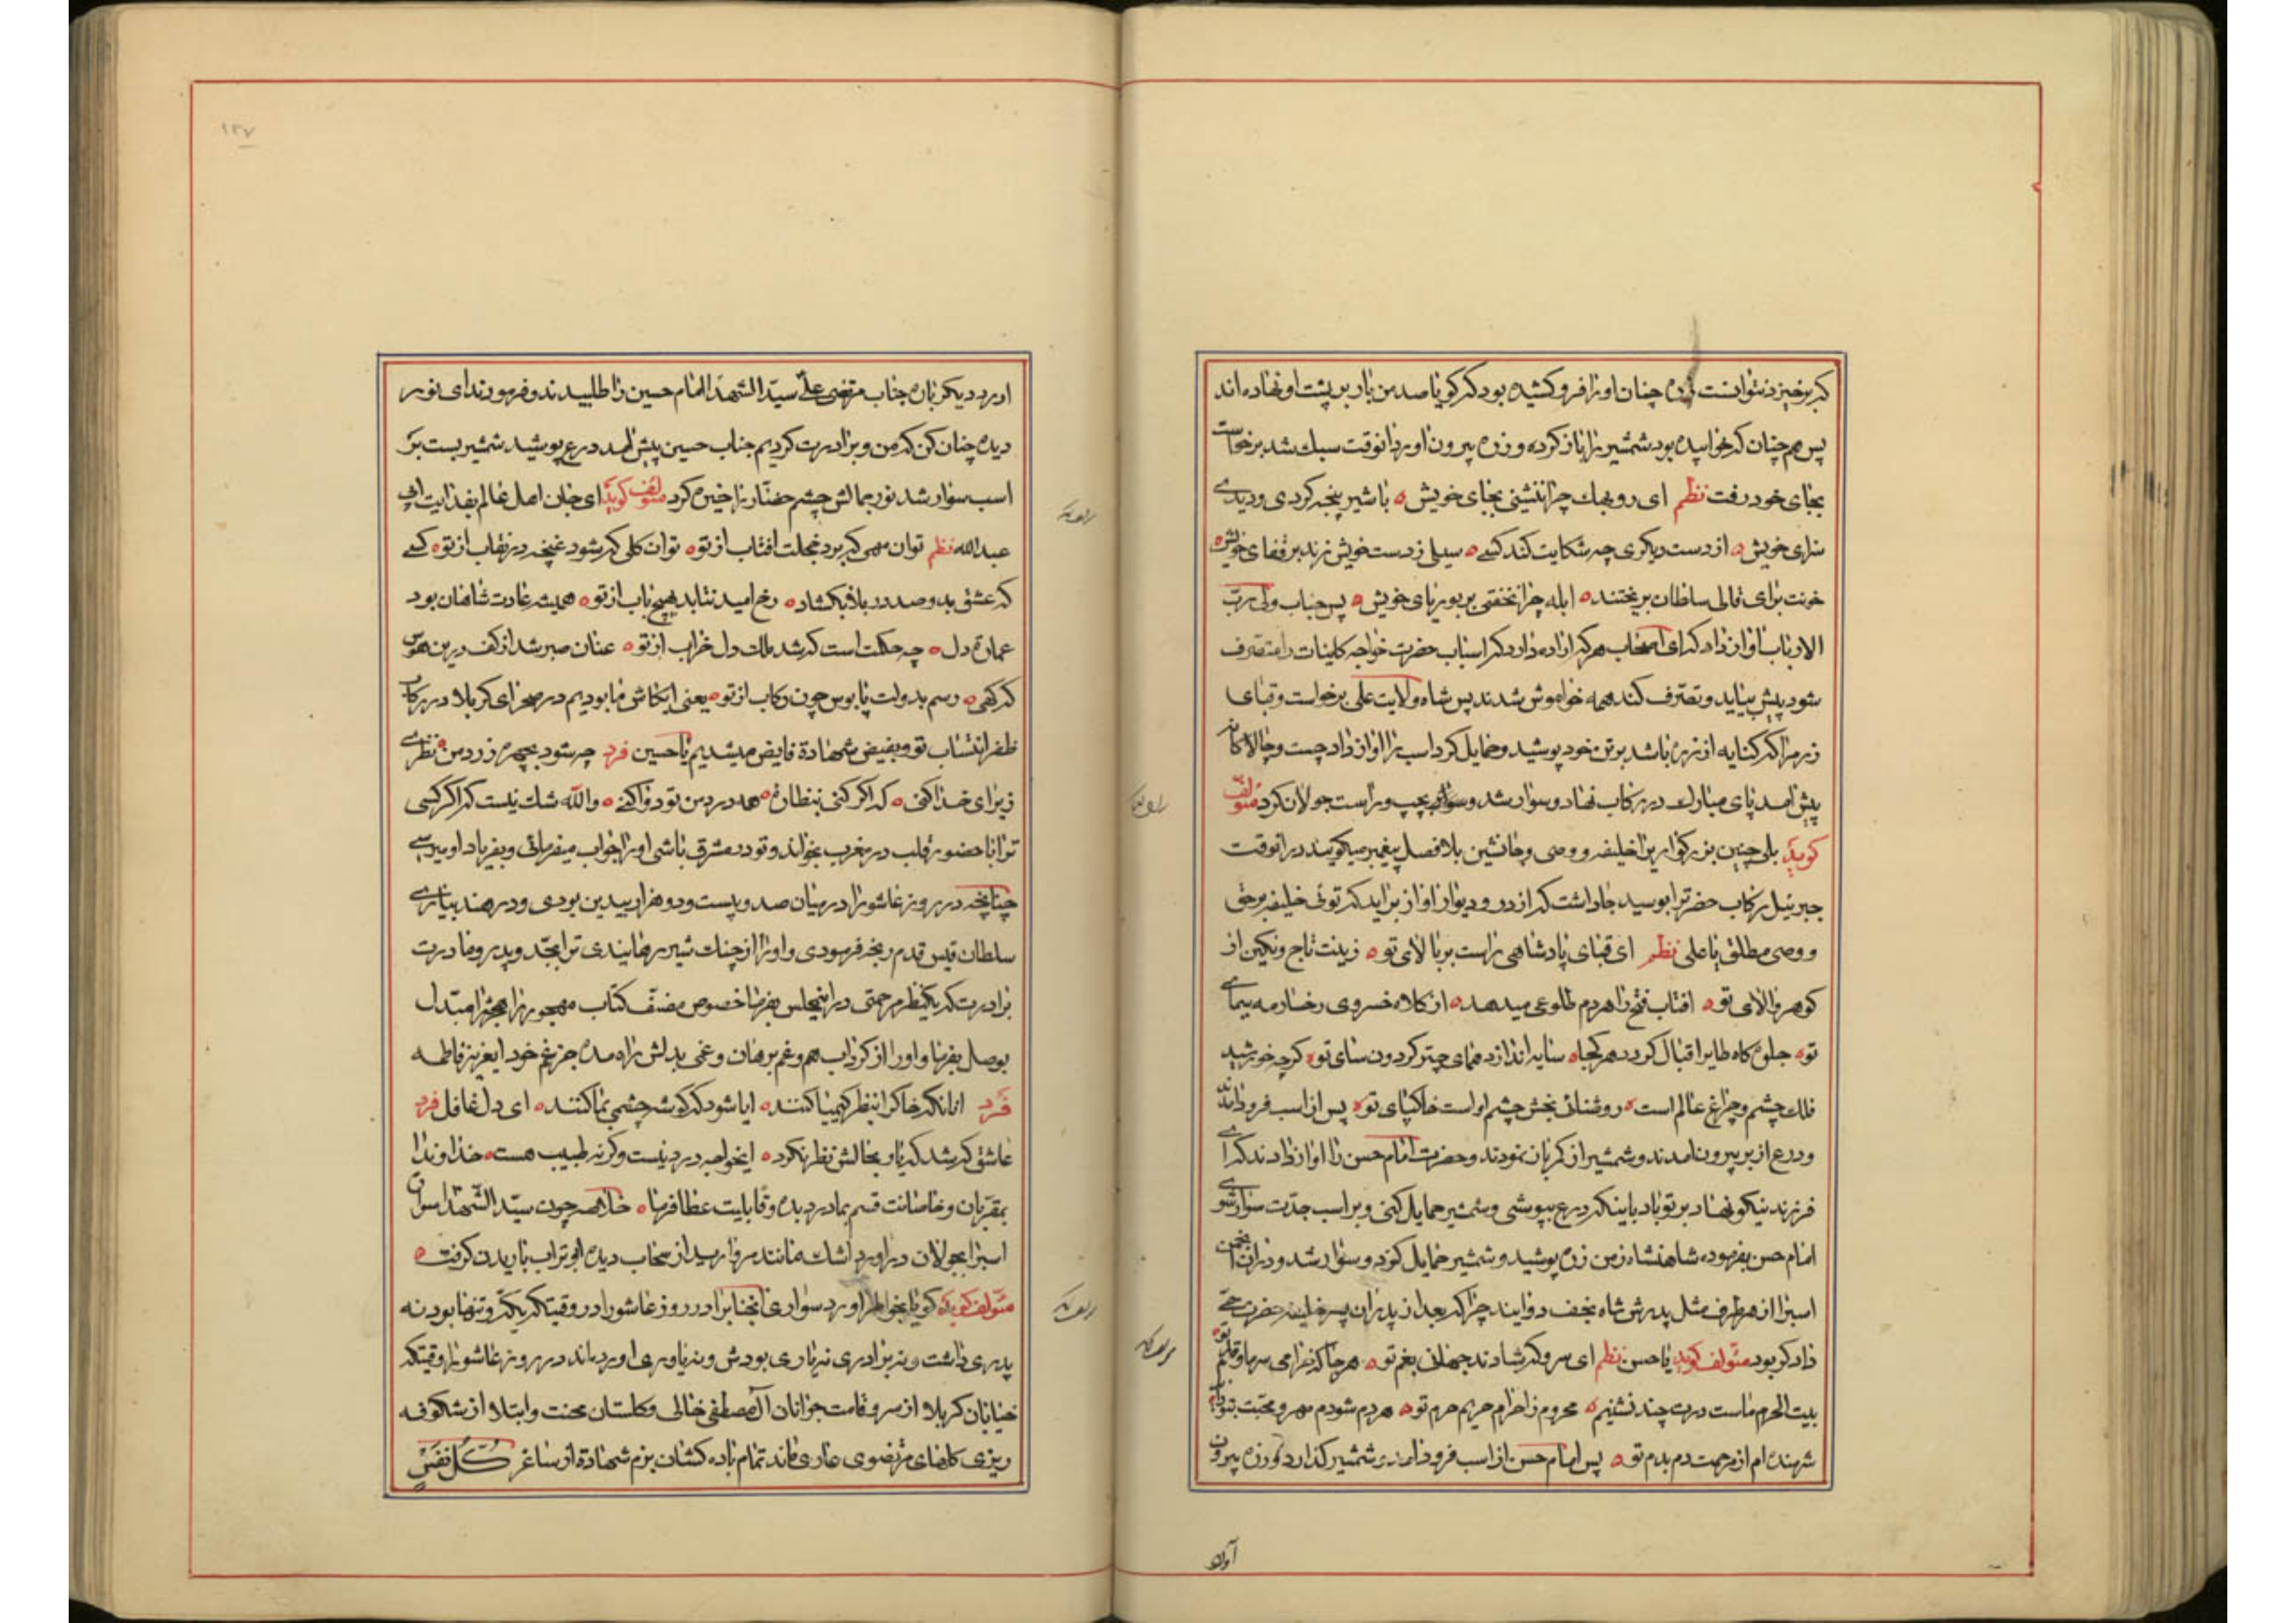 که برخیزد نتوانست زره چنان او را فرو کشیده بود که گویا صد من بار بر پشت او نهاده‌اند
پس هم چنان که خوابیده بود شمشیر را باز کرده و زره بیرون آورد آنوقت سبک شد برخاست
بجای خود رفت نظم ای روبهک چرا ننشینی بجای خویش ه با شیر پنجه کردی و دیدی
سزای خویش ه از دست دیگری چه شکایت کند کسی ه سیلی ز دست خویش زند بر قفای خویش ه
خونت برای قالی سلطان بریختند ه ابله چرا نخفتی بر بوریای خویش ه پس جناب ولی ربّ
الارباب آواز داد که ای اصحاب هر که اراده دارد که اسباب حضرت خواجه کاینات را متصرف
شود پیش بیاید و تصرّف کند همه خواموش شدند پس شاه ولایت علی برخواست و قبای
زهرا که کنایه از زره باشد بر تن خود پوشید و حمایل کرد اسب را آواز داد چست و چالاکانه
پیش آمد پای مبارک در رکاب نهاد و سوار شد و سواره بچپ و راست جولان کرد مؤلف
کوید بلی چنین بزرکوار را خلیفه و وصی و جانشین بلافصل پیغمبر میکویند در آنوقت
جبرئیل رکاب حضرترا بوسید جا داشت که از در و دیوار آواز برآید که توئی خلیفه برحق
و وصی مطلق یا علی نظم ای قبای پادشاهی راست بر بالای تو ه زینت تاج و نکین از
کوهر والای تو ه آفتاب فتح را هر دم طلوعی میدهد ه از کلاه خسروی رخسار مه سیمای
تو ه جلوه کاه طایر اقبال کردد هر کجا ه سایه اندازد همای چتر کردون سای تو ه کرچه خورشید
فلک چشم و چراغ عالم است ه روشنائی بخش چشم اوست خاکپای تو ه پس از اسب فرود آمدند
و درع از بر بیرون آمدند و شمشیر از کمر باز نمودند و حضرت امام حسن را آواز دادند که ای
فرزند نیکو نهاد بر تو باد باینکه درع بپوشی و شمشیر حمایل کنی و بر اسب جدّت سوار شوی
امام حسن بفرموده شاهنشاه زمن زره پوشید و شمشیر حمایل کرد و سوار شد و در آن انجمن
اسبرا از هر طرف مثل پدرش شاه نجف دوایند چرا که بعد از پدر آن پسر خلیفه حضرت حیّ
داد کر بود مؤلف کوید یا حسن نظم ای سرو کر شادند جهانی بغم تو ه هر جا که خرامی سر ما و قدم تو ه
بیت الحرم ماست درت چند نشینم ه محروم ز احرام حریم حرم تو ه هر دم شودم مهر و محبت بتو
شرمنده‌ام از مرحمت دم بدم تو ه پس امام حسن از اسب فرود آمد شمشیر کذارد و زره بیرون
آورد
۱۲۷
آورد دیکر باره جناب مرتضی علی سیّد الشهدا امام حسین را طلبیدند و فرمودند ای نور
دیده چنان کن که من و برادرت کردیم جناب حسین پیش آمد درع پوشید شمشیر بست بر
اسب سوار شد نور جمالش چشم حضّار را خیره کرد مؤلف کوید ای جان اهل عالم بفدایت یا ابی
عبد الله نظم توان مهی که برد خجلت آفتاب از تو ه توان کلی که شود غنچه در نقاب از تو ه کسی
که عشق بدو صد در بلا بکشاد ه رخ امید نتابد بهیچ باب از تو ه همیشه عادت شاهان بود
عمارة دل ه چه حکمت است که شد ملک دل خراب از تو ه عنان صبر شد از کف درین هوس
که کهی ه رسم بدولت پابوس چون رکاب از تو ه یعنی ایکاش ما بودیم در صحرای کربلا در رکاب
ظفر انتساب تو و بفیض شهادة فایض میشدیم یا حسین فرد چه شود بچهره زرد من نظری
ز برای خدا کنی ه که اگر کنی بنظاره ه همه درد من تو دوا کنی ه والله شک نیست که اگر کسی
ترا با حضور قلب در مغرب بخواند و تو در مشرق باشی او را جواب میفرمائی و بفریاد او میرسی
چنانچه در روز عاشورا در میان صد و بیست و دو هزار بیدین بودی و در هند بیاری
سلطان قیس قدم رنجه فرمودی و او را از چنک شیر رهانیدی ترا بجد و پدر و مادرت
برادرت که یکنظر مرحمتی در اینمجلس بفرما خصوص مصنّف کتاب مهجور را هجر را مبدّل
بوصل بفرما و او را از کرداب هم و غم برهان و غمی بدلش راه مده جز غم خود ایعزیز فاطمه
فرد آنانکه خاک را بنظر کیمیا کنند ه آیا شود که کوشه چشمی بما کنند ه ای دل غافل فرد
عاشق که شد که یار بحالش نظر نکرد ه ایخواجه درد نیست وکرنه طبیب هست ه خداوندا
بمقرّبان و خاصانت قسم بما درد بده و قابلیت عطا فرما ه خلاصه چون سیّد الشّهدا سواره
اسبرا بجولان درآورد اشک مانند مروارید از سحاب دیده ابو تراب باریدن کرفت ه
مؤلف کوید کویا بخواطر آورد سواری آنجنابرا در روز عاشورا در وقیتکه یکّه و تنها بود نه
پدری داشت و نه برادری نه یاری بودش و نه یاوری اورده‌اند در روز عاشورا وقیتکه
خیابان کربلا از سرو قامت جوانان آل مصطفی خالی و کلستان محنت و ابتلا از شکوفه
ریزی کلهای مرتضوی عاری ماند تمام باده کشان بزم شهادة از ساغر کُلُّ نَفْسٍ